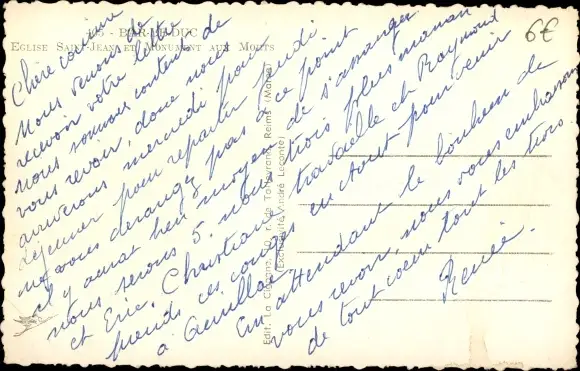 6€
- BAR-LE-DUC
EGLISE SAINT-JEAN ET MONUMENT AUX MORTS
Chère cousine
Nous venons de
recevoir votre lettre
nous sommes contents de
vous revoir, donc nous
arriverons mercredi pour
déjeuner pour repartir jeudi
ne vous dérangez pas à ce point
il y aurait bien moyen de s'arranger
nous serons 5. nous trois plus maman
et Eric. Christiane travaille et Raymond
prends ces congés en Aout pour venir
à Aurillac
En attendant le bonheur de
vous revoir, nous vous embrassons
de tout coeur tout les trois.
Renée.
Edit. La Cigogne, rue de Talleyrand, Reims (Marne)
(Exclusivité André Leconte)